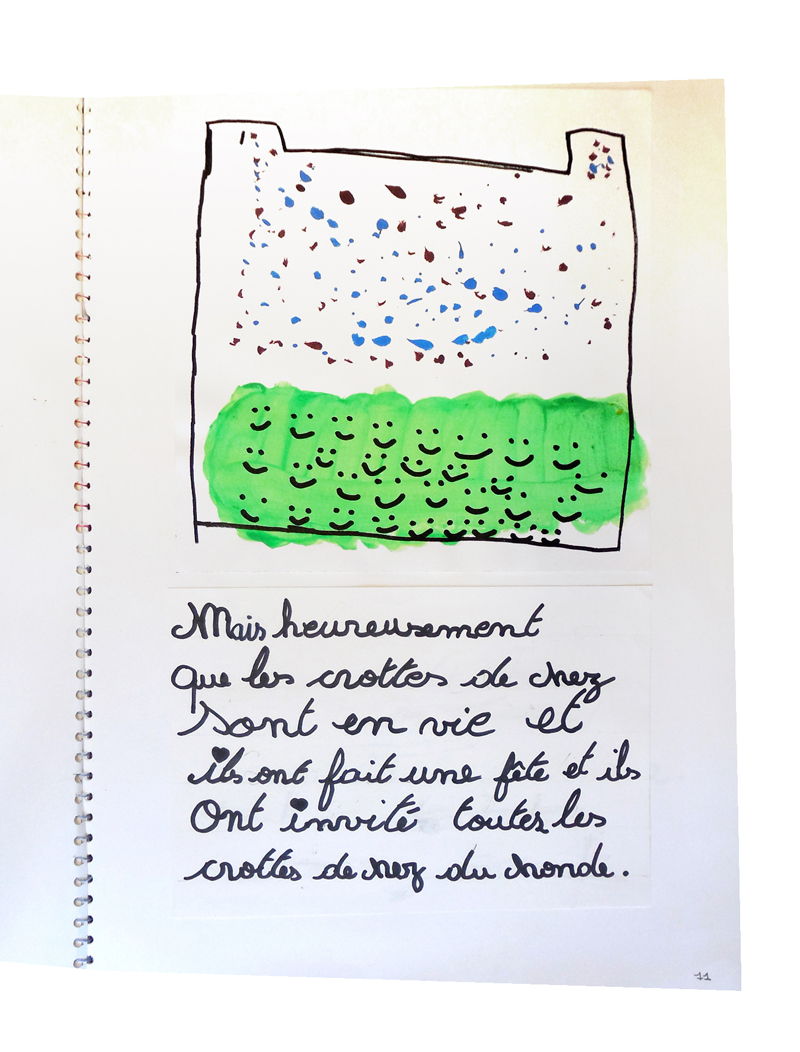 Mais heureusement
que les crottes de nez
sont en vie et
ils ont fait une fête et ils
ont invité toutes les
crottes de nez du monde.
11